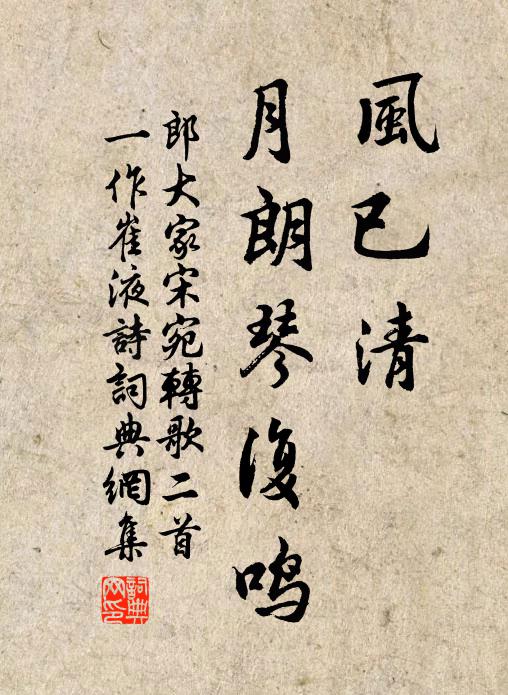 風已清
月朗琴復鳴
郎大家宋宛轉歌二首
一作崔液詩詞典網集